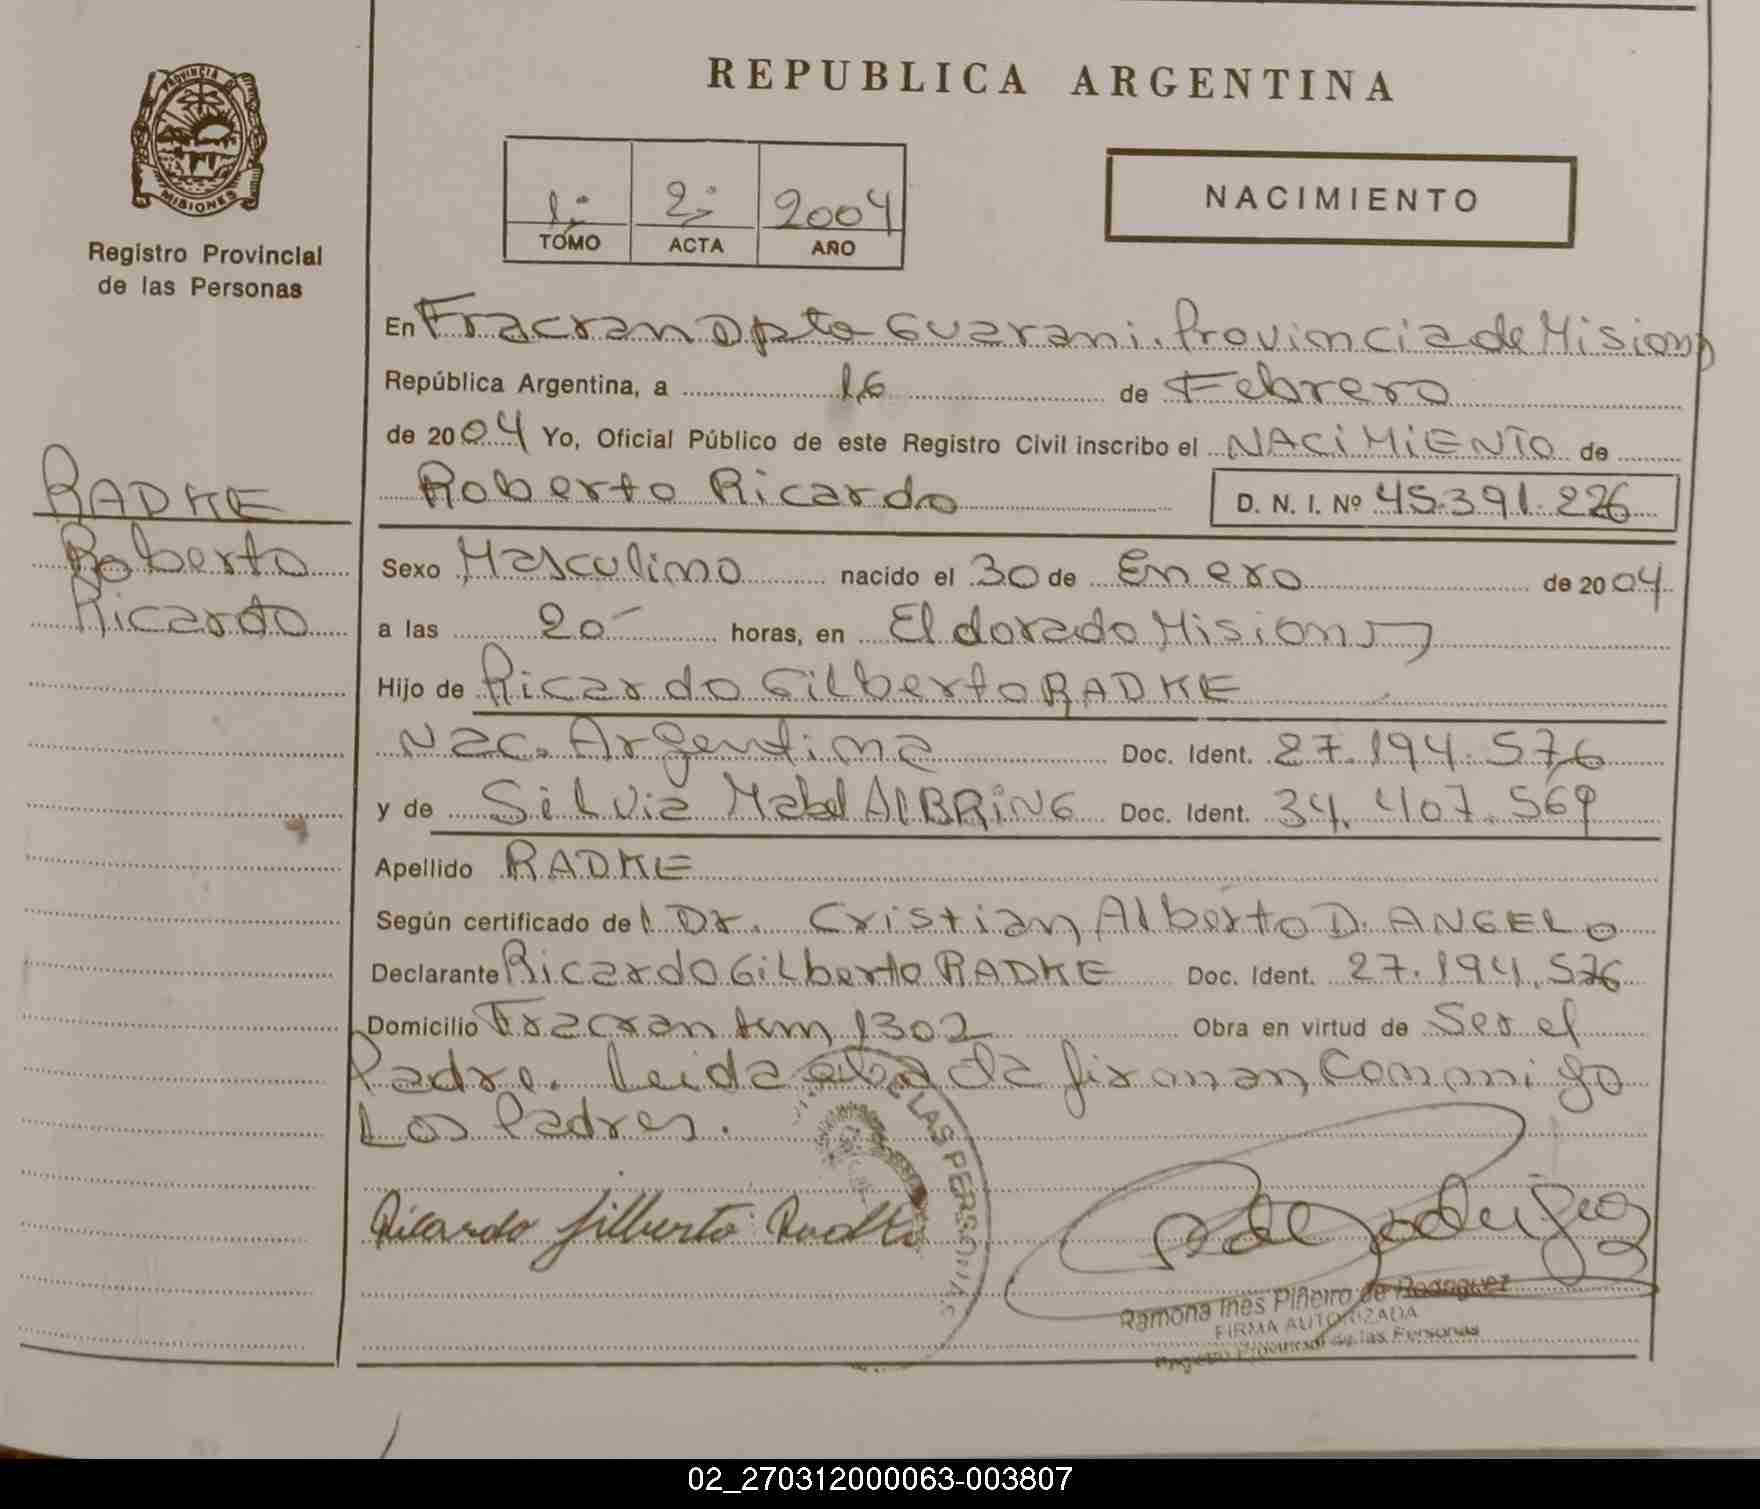 REPUBLICA ARGENTINA
PROVINCIA DE
MISIONES
Registro Provincial
de las Personas
1º 2º 2004
TOMO ACTA AÑO
NACIMIENTO
En Fracran Dpto Guarani. Provincia de Misiones
República Argentina, a 16 de Febrero
de 2004 Yo, Oficial Público de este Registro Civil inscribo el NACIMIENTO de
Roberto Ricardo D. N. I. Nº 45.391.226
RADKE
Roberto
Ricardo
Sexo Masculino nacido el 30 de Enero de 2004
a las 20 horas, en Eldorado Misiones
Hijo de Ricardo Gilberto RADKE
Nac. Argentina Doc. Ident. 27.194.576
y de Silvia Mabel AlBRING Doc. Ident. 34.407.569
Apellido RADKE
Según certificado del Dr. Cristian Alberto D. ANGELO
Declarante Ricardo Gilberto RADKE Doc. Ident. 27.194.576
Domicilio Fracran km 1302 Obra en virtud de Ser el
Padre. Leida el acta firman Conmigo
Los Padres.
DE LAS PERSONAS
Ricardo Gilberto Radke
Ramona Ines Piñeiro de Rodriguez
FIRMA AUTORIZADA
Registro Provincial de las Personas
02_270312000063-003807